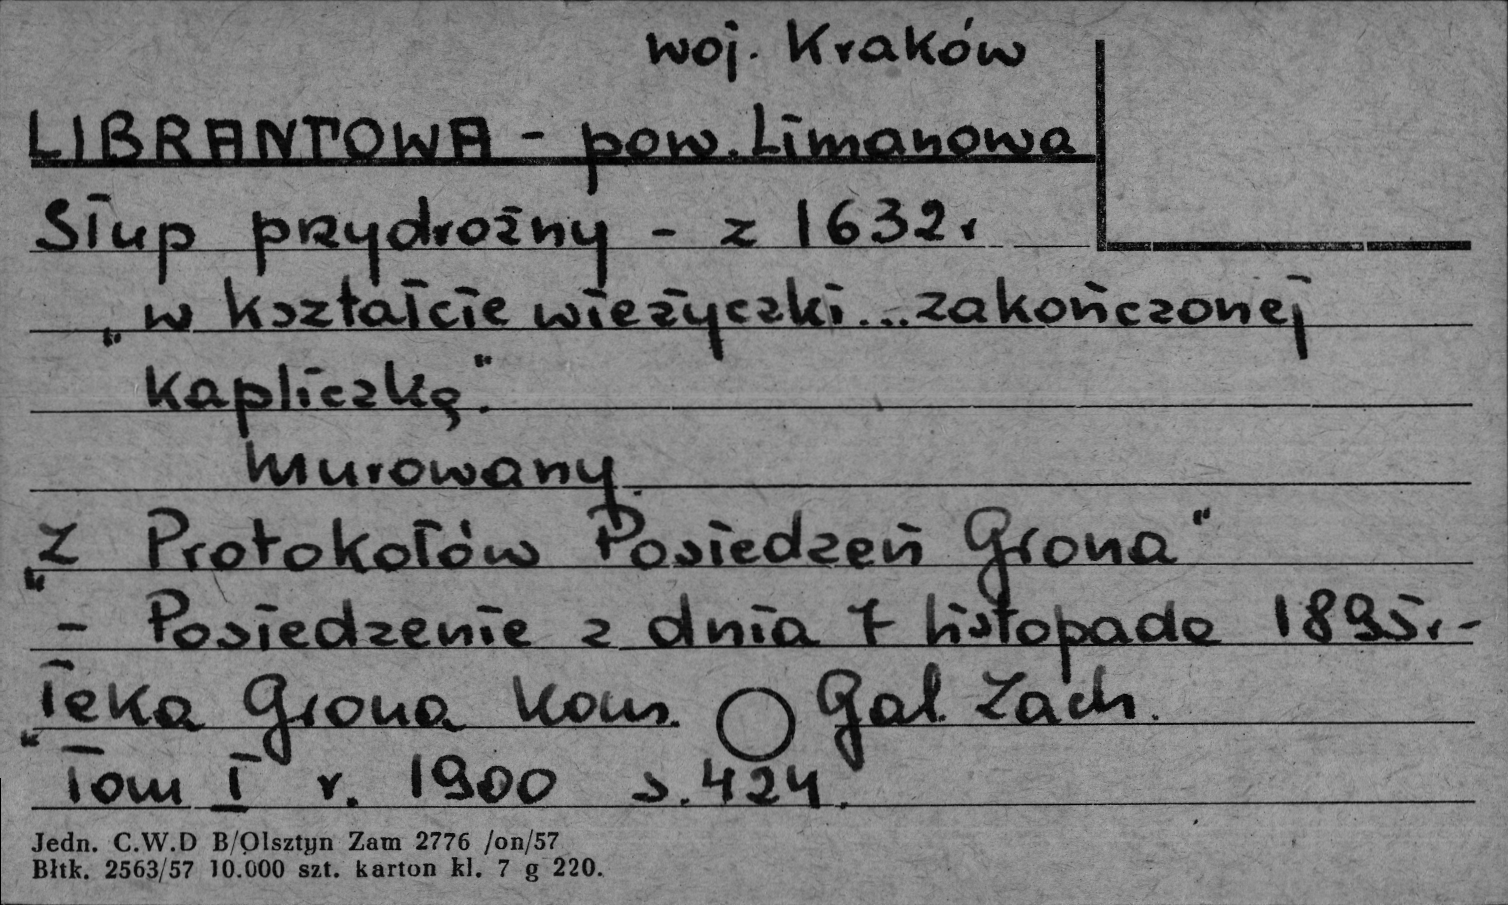 woj. Kraków
LIBRANTOWA - pow. Limanowa
Słup przydrożny - z 1632 r
„w kształcie wieżyczki...zakończonej
kapliczką".
murowany.
„Z Protokołów Posiedzeń Grona"
- Posiedzenie z dnia 7 listopada 1895 r -
„Teka Grona Kons. Gal. Zach.
Tom I r. 1900 s. 424.
Jedn. C.W.D B/Olsztyn Zam 2776 /on/57
Błtk. 2563/57 10.000 szt. karton kl. 7 g 220.